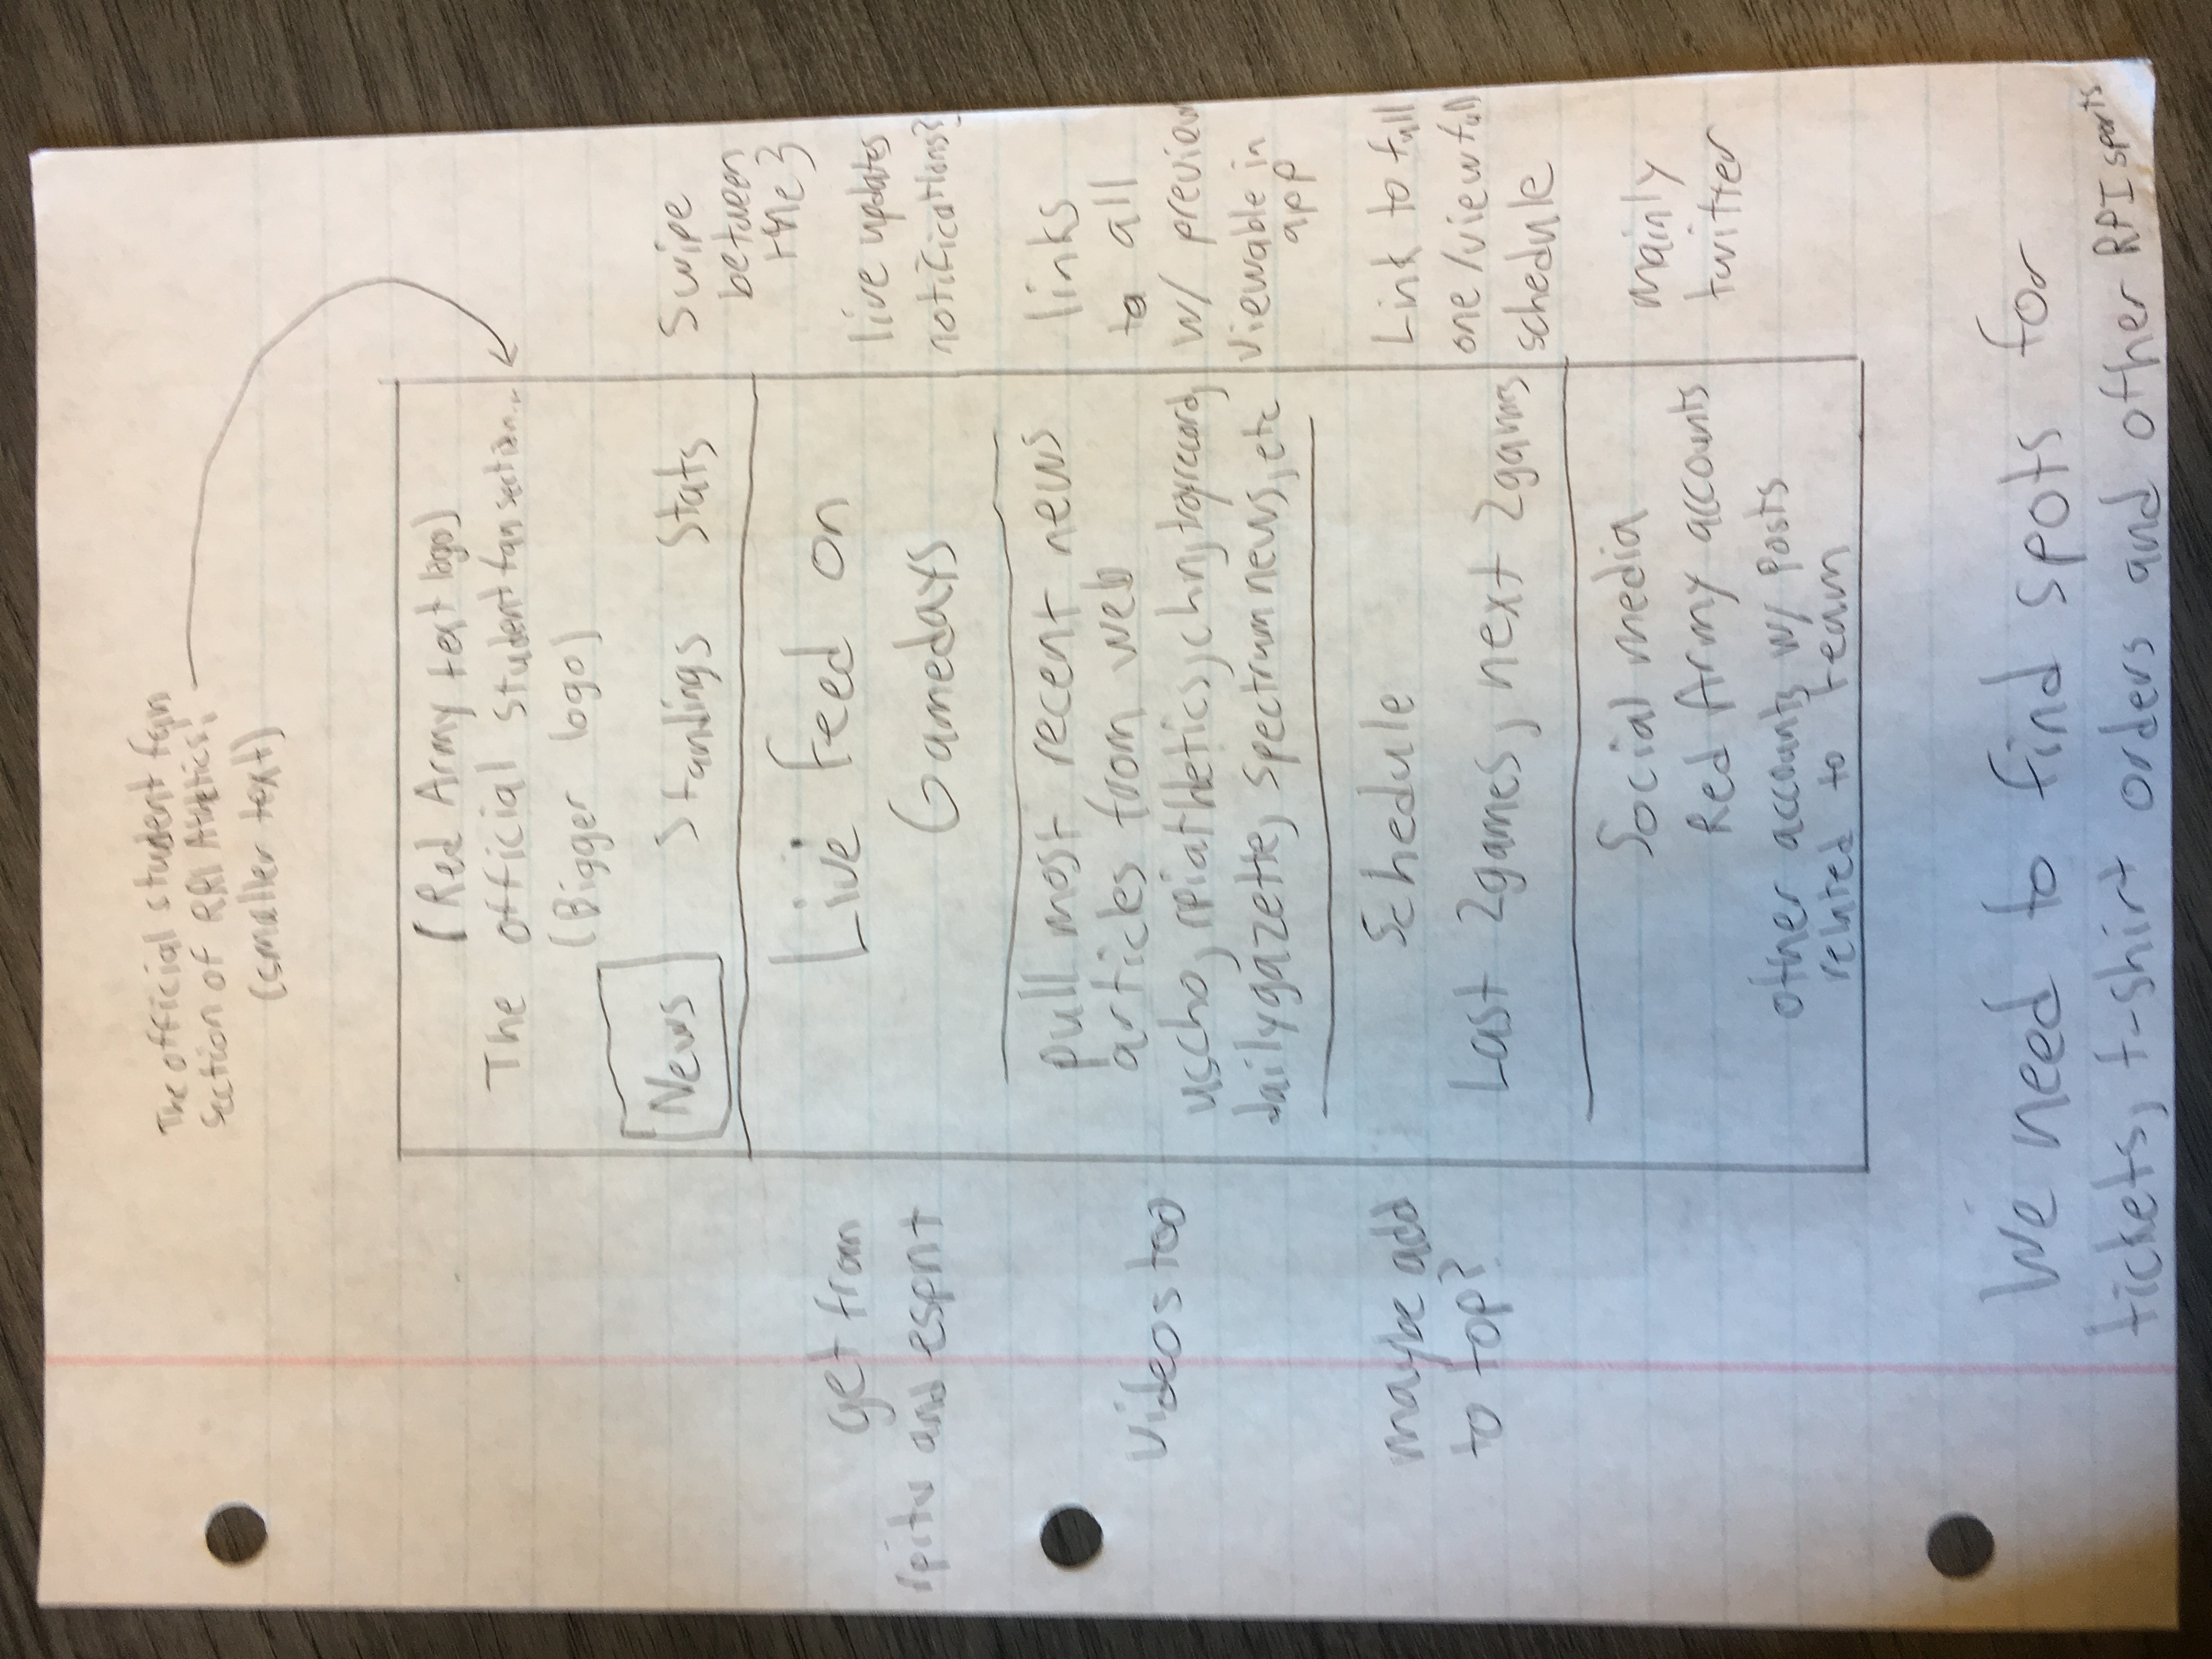 The official student fan
section of RPI Athletics!
(smaller text)
(Red Army text logo)
The official student fan section...
(Bigger logo)
News Standings Stats
Swipe
between
the 3
Live Feed on
Gamedays
get from
rpitv and espn+
live updates
notifications?
pull most recent news
articles from web
uscho, rpiathletics, chn, troyrecord,
dailygazette, spectrum news, etc
videos too
links
to all
w/ preview
viewable in
app
Schedule
Last 2games, next 2games
maybe add
to top?
Link to full
one/view full
schedule
Social media
Red Army accounts
other accounts w/ posts
related to team
mainly
twitter
We need to find spots for
tickets, t-shirt orders and other RPI sports